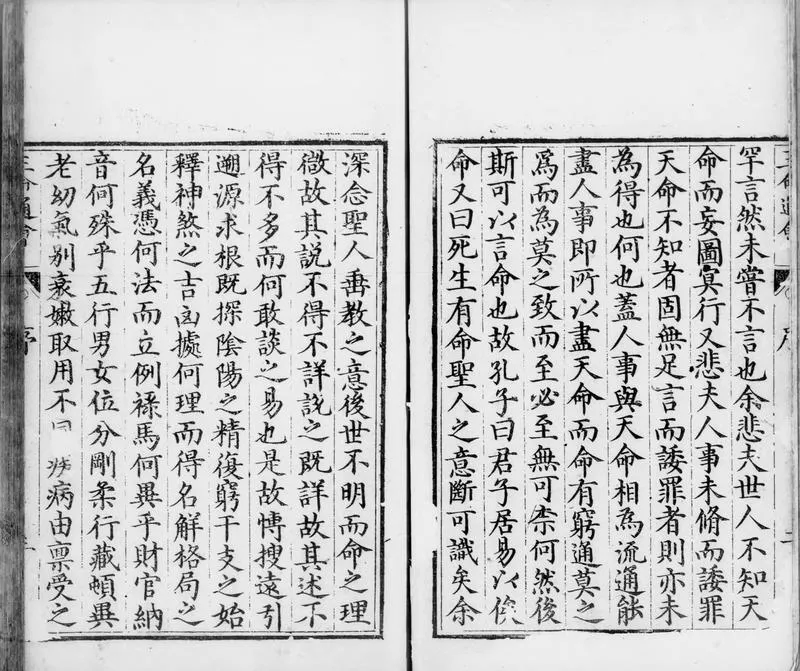 罕言然未嘗不言也余悲夫世人不知天
命而妄圖冥行又悲夫人事未脩而諉罪
天命不知者固無足言而諉罪者則亦未
為得也何也蓋人事與天命相為流通能
盡人事即所以盡天命而命有窮通莫之
爲而為莫之致而至必至無可柰何然後
斯可以言命也故孔子曰君子居易以俟
命又曰死生有命聖人之意斷可識矣余
深念聖人垂教之意後世不明而命之理
微故其說不得不詳說之既詳故其述不
得不多而何敢談之易也是故慱搜遠引
遡源求根既探陰陽之精復窮干支之始
釋神煞之吉凶㨿何理而得名解格局之
名義憑何法而立例祿馬何異乎財官納
音何殊乎五行男女位分剛柔行藏頓異
老幼氣別衰嫩取用不 疾病由禀受之
三命通會
序
二
三命通會
序